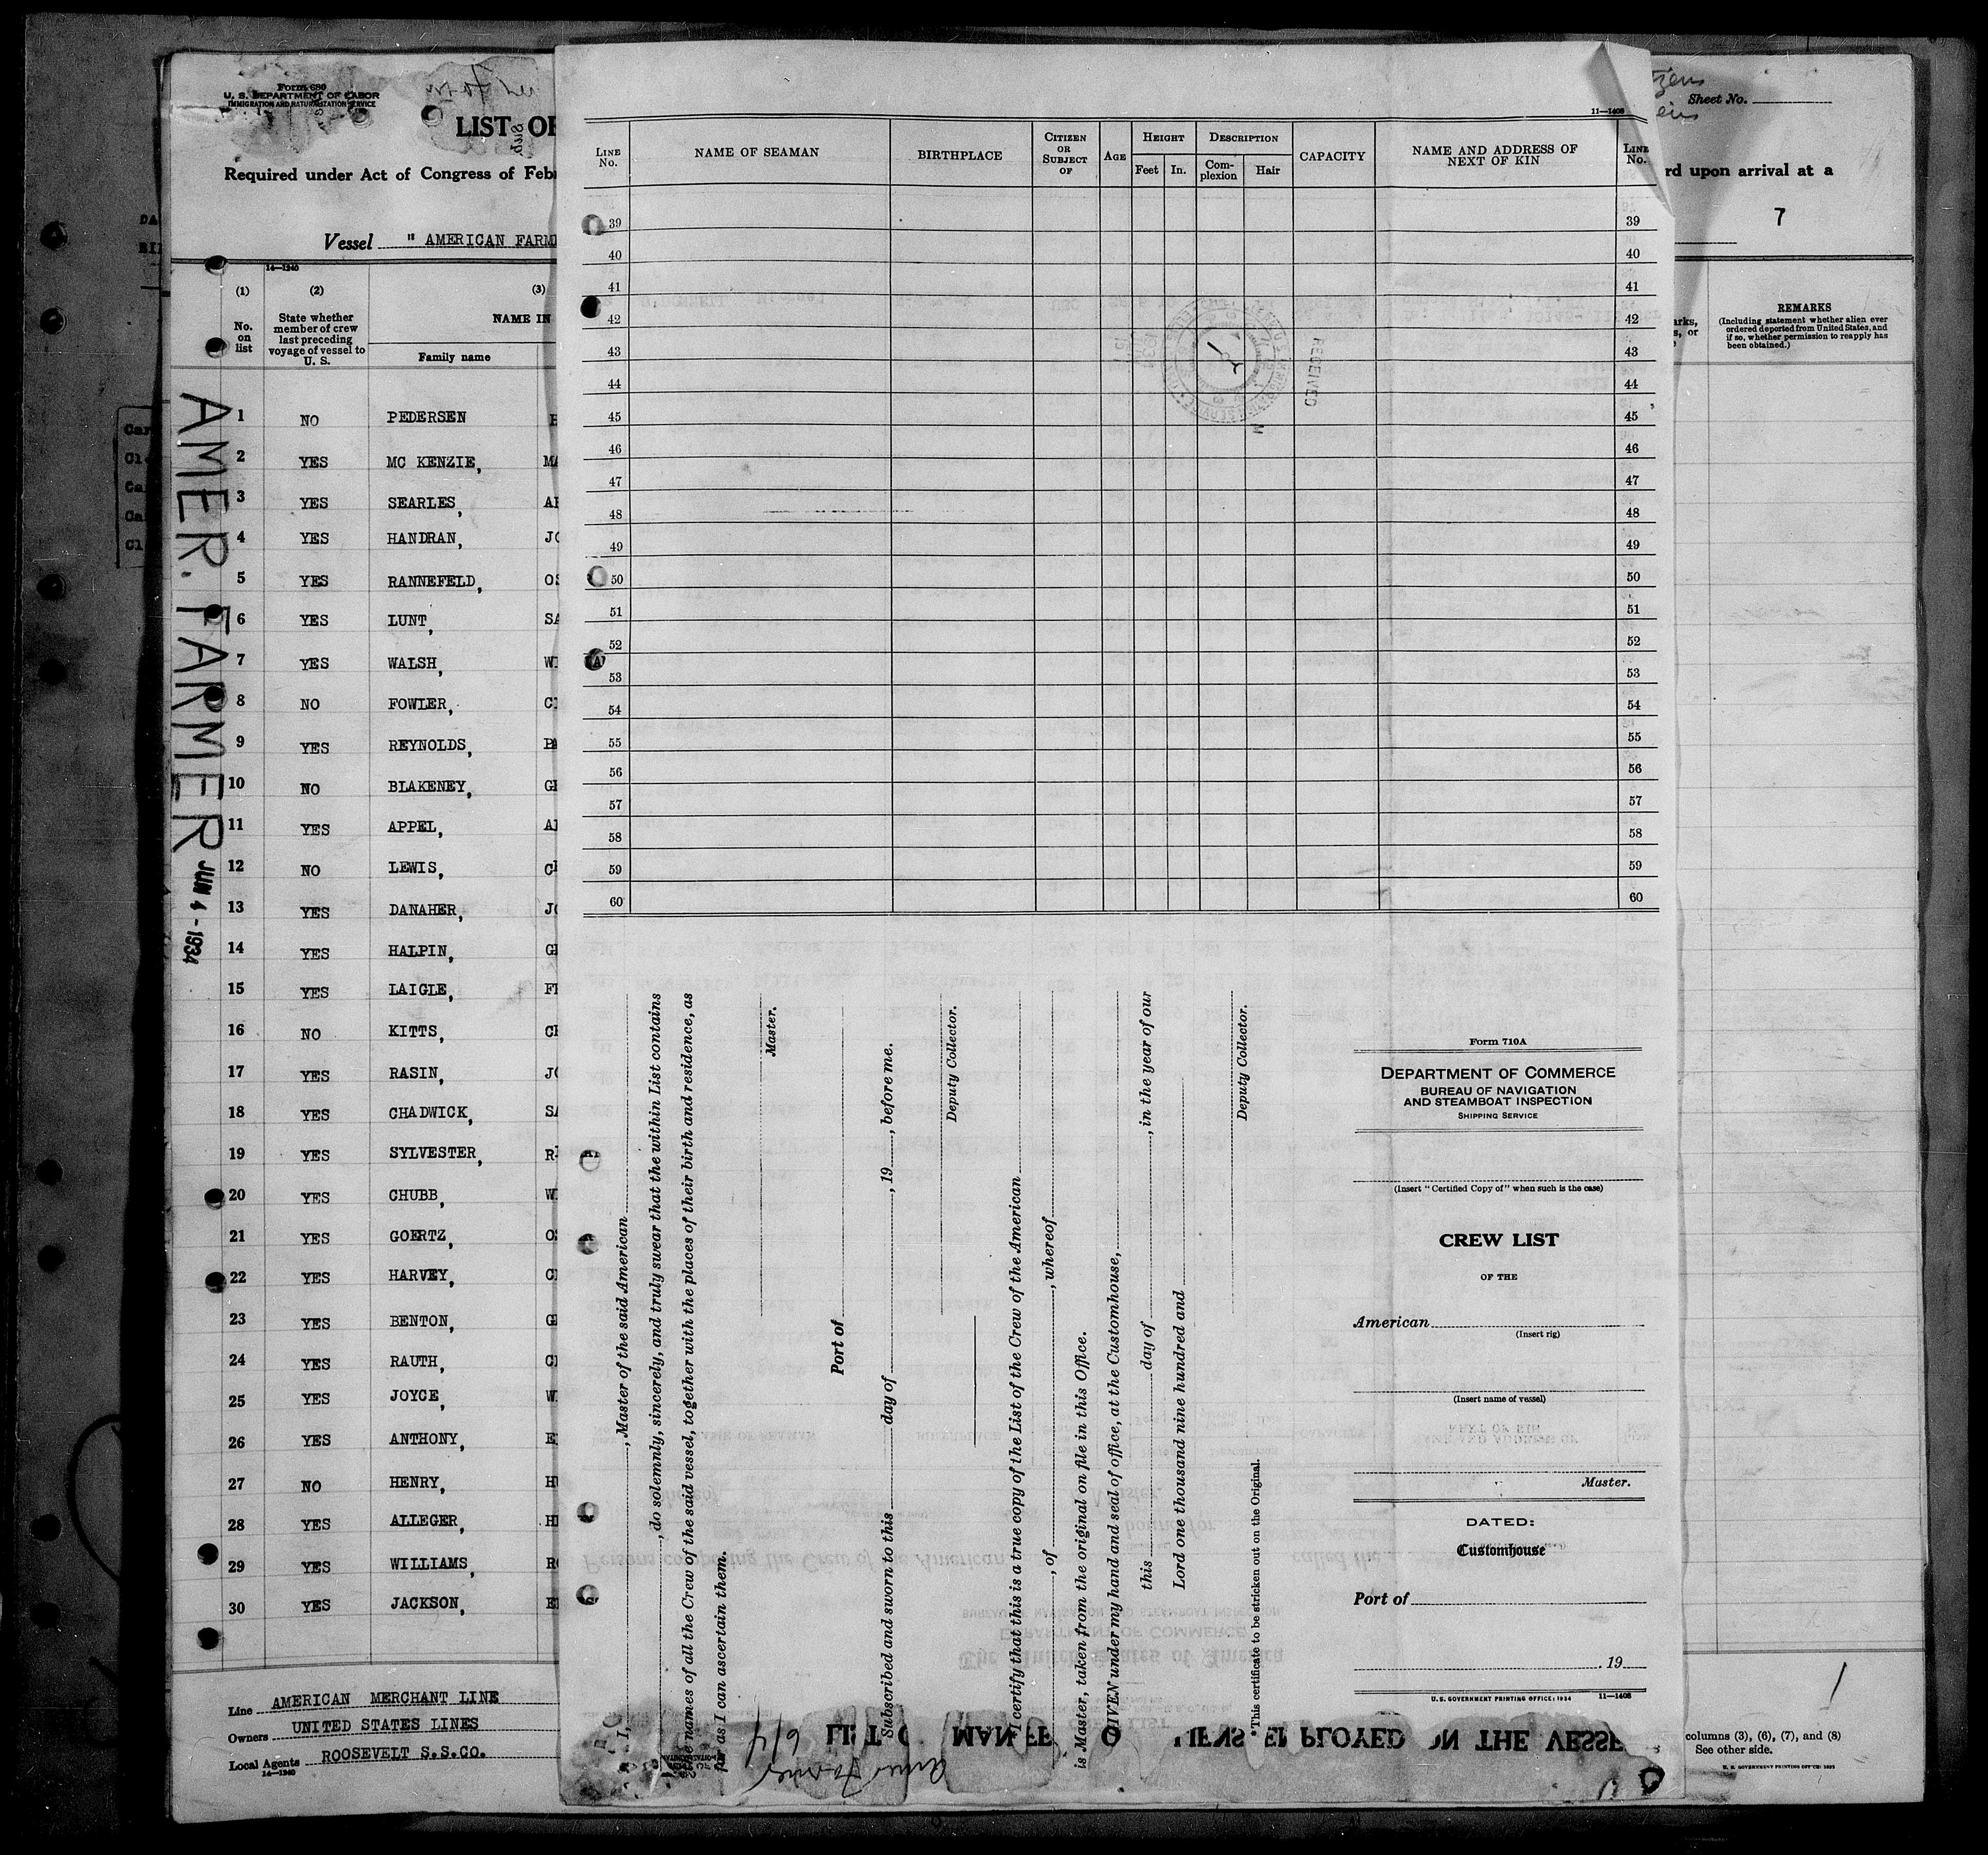 Form 680
U. S. DEPARTMENT OF LABOR
IMMIGRATION AND NATURALIZATION SERVICE
LIST OF
Required under Act of Congress of Feb
Vessel " AMERICAN FARM
14—1240
(1) (2) (3)
No. on list
State whether member of crew last preceding voyage of vessel to U. S.
NAME IN
Family name
1 NO PEDERSEN
2 YES MC KENZIE,
3 YES SEARLES,
4 YES HANDRAN,
5 YES RANNEFELD,
6 YES LUNT,
7 YES WALSH,
8 NO FOWLER,
9 YES REYNOLDS,
10 NO BLAKENEY,
11 YES APPEL,
12 NO LEWIS,
13 YES DANAHER,
14 YES HALPIN,
15 YES LAIGLE,
16 NO KITTS,
17 YES RASIN,
18 YES CHADWICK,
19 YES SYLVESTER,
20 YES CHUBB,
21 YES GOERTZ,
22 YES HARVEY,
23 YES BENTON,
24 YES RAUTH,
25 YES JOYCE,
26 YES ANTHONY,
27 NO HENRY,
28 YES ALLEGER,
29 YES WILLIAMS,
30 YES JACKSON,
AMER. FARMER
JUN 4 - 1934
Line AMERICAN MERCHANT LINE
Owners UNITED STATES LINES
Local Agents ROOSEVELT S.S.CO.
14—1240
11—1408
LINE No.
NAME OF SEAMAN
BIRTHPLACE
CITIZEN OR SUBJECT OF
AGE
HEIGHT
Feet In.
DESCRIPTION
Complexion Hair
CAPACITY
NAME AND ADDRESS OF NEXT OF KIN
LINE No.
39 39
40 40
41 41
42 42
43 43
44 44
45 45
46 46
47 47
48 48
49 49
50 50
51 51
52 52
53 53
54 54
55 55
56 56
57 57
58 58
59 59
60 60
RECEIVED
, Master of the said American
, do solemnly, sincerely, and truly swear that the within List contains
the names of all the Crew of the said vessel, together with the places of their birth and residence, as
far as I can ascertain them.
Master.
Port of
Subscribed and sworn to this day of , 19 , before me.
Deputy Collector.
I certify that this is a true copy of the List of the Crew of the American
, of , whereof
is Master, taken from the original on file in this Office.
GIVEN under my hand and seal of office, at the Customhouse,
this day of , in the year of our
Lord one thousand nine hundred and
Deputy Collector.
*This certificate to be stricken out on the Original.
Form 710A
DEPARTMENT OF COMMERCE
BUREAU OF NAVIGATION
AND STEAMBOAT INSPECTION
SHIPPING SERVICE
(Insert "Certified Copy of" when such is the case)
CREW LIST
OF THE
American
(Insert rig)
(Insert name of vessel)
Master.
DATED:
Customhouse
Port of
19
U. S. GOVERNMENT PRINTING OFFICE: 1934 11—1408
Amer Farmer 6/4
Sheet No.
rd upon arrival at a
7
REMARKS
(Including statement whether alien ever ordered deported from United States, and if so, whether permission to reapply has been obtained.)
columns (3), (6), (7), and (8)
See other side.